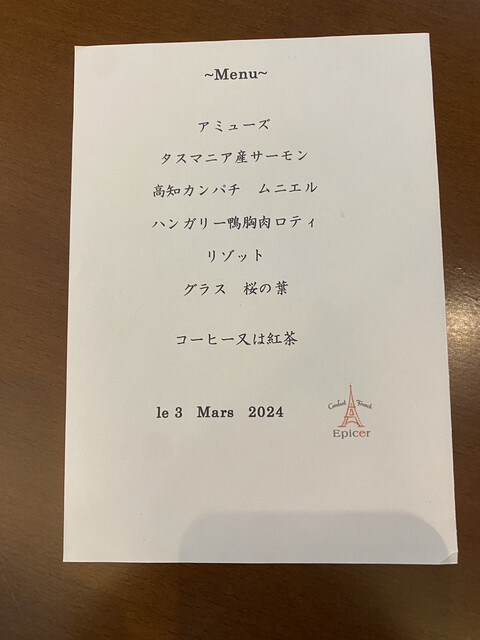 ~Menu~
アミューズ
タスマニア産サーモン
高知カンパチ　ムニエル
ハンガリー鴨胸肉ロティ
リゾット
グラス　桜の葉
コーヒー又は紅茶
le 3 Mars 2024
Epicer